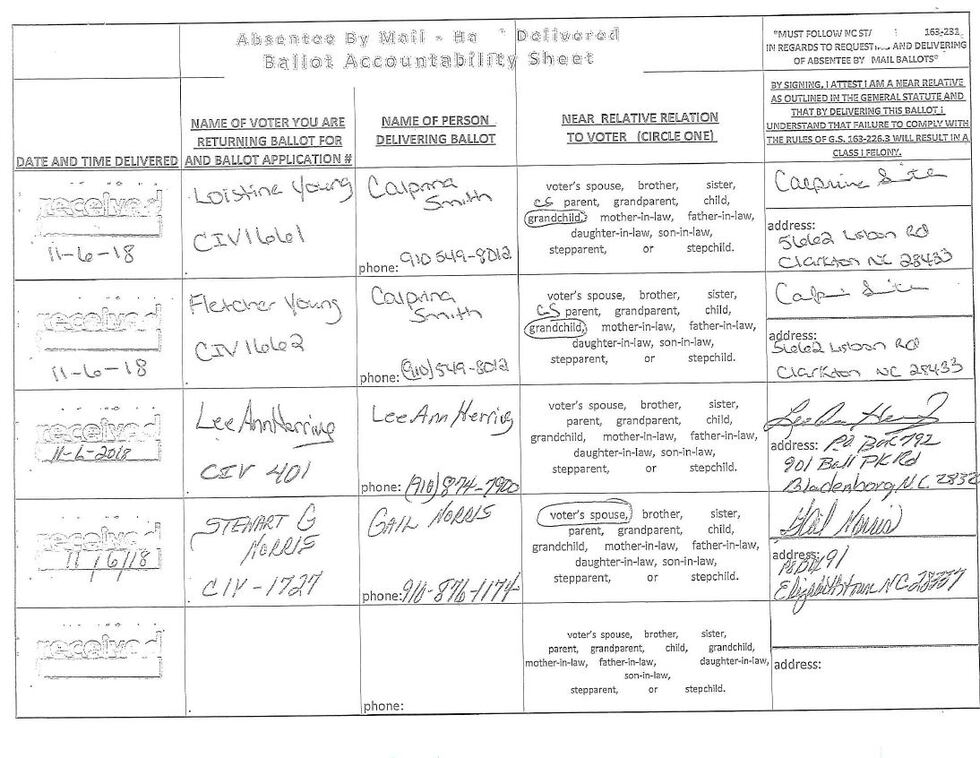 Absentee By Mail - Ha Delivered
Ballot Accountability Sheet
"MUST FOLLOW NC ST/ 163-231
IN REGARDS TO REQUEST AND DELIVERING
OF ABSENTEE BY MAIL BALLOTS"
DATE AND TIME DELIVERED
NAME OF VOTER YOU ARE
RETURNING BALLOT FOR
AND BALLOT APPLICATION #
NAME OF PERSON
DELIVERING BALLOT
NEAR RELATIVE RELATION
TO VOTER (CIRCLE ONE)
BY SIGNING, I ATTEST I AM A NEAR RELATIVE
AS OUTLINED IN THE GENERAL STATUTE AND
THAT BY DELIVERING THIS BALLOT I
UNDERSTAND THAT FAILURE TO COMPLY WITH
THE RULES OF G.S. 163-226.3 WILL RESULT IN A
CLASS I FELONY.
received
11-6-18
Loistine Young
CIV1661
Calprina
Smith
phone: 910 549-8012
voter's spouse, brother, sister,
CS parent, grandparent, child,
grandchild, mother-in-law, father-in-law,
daughter-in-law, son-in-law,
stepparent, or stepchild.
address:
5662 Lisbon Rd
Clarkton NC 28433
received
11-6-18
Fletcher Young
CIV1662
Calprina
Smith
phone: (910) 549-8012
voter's spouse, brother, sister,
CS parent, grandparent, child,
grandchild, mother-in-law, father-in-law,
daughter-in-law, son-in-law,
stepparent, or stepchild.
address:
5662 Lisbon Rd
Clarkton NC 28433
received
11-6-2018
Lee Ann Herring
CIV 401
Lee Ann Herring
phone: (910) 874-7900
voter's spouse, brother, sister,
parent, grandparent, child,
grandchild, mother-in-law, father-in-law,
daughter-in-law, son-in-law,
stepparent, or stepchild.
address: P.O. Box 792
901 Ball PK Rd
Bladenboro N.C. 2832
received
11/6/18
STEWART G
NORRIS
CIV-1727
GAIL NORRIS
phone: 910-876-1174
voter's spouse, brother, sister,
parent, grandparent, child,
grandchild, mother-in-law, father-in-law,
daughter-in-law, son-in-law,
stepparent, or stepchild.
Gail Norris
address:
PO Box 91
Elizabethtown NC 28337
received
phone:
voter's spouse, brother, sister,
parent, grandparent, child, grandchild,
mother-in-law, father-in-law, daughter-in-law,
son-in-law,
stepparent, or stepchild.
address: